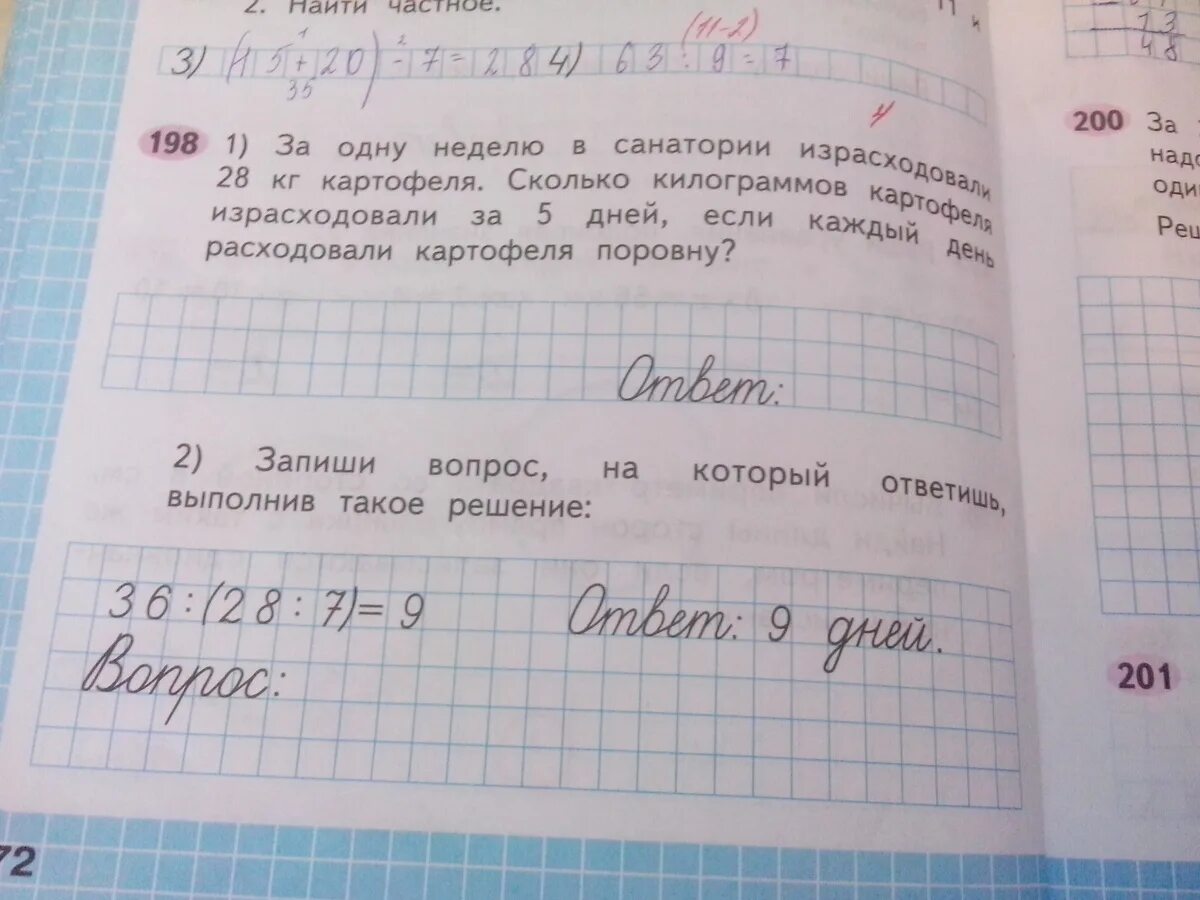 2. Найти частное.
3) (15+20) - 7 = 28 4) 63 : 9 = 7
(11-2)
1
2
35
4
198 1) За одну неделю в санатории израсходовали
28 кг картофеля. Сколько килограммов картофеля
израсходовали за 5 дней, если каждый день
расходовали картофеля поровну?
Ответ:
2) Запиши вопрос, на который ответишь,
выполнив такое решение:
36:(28:7)=9 Ответ: 9 дней.
Вопрос:
72
11 и
13
48
200 За
надо
оди
Реш
201